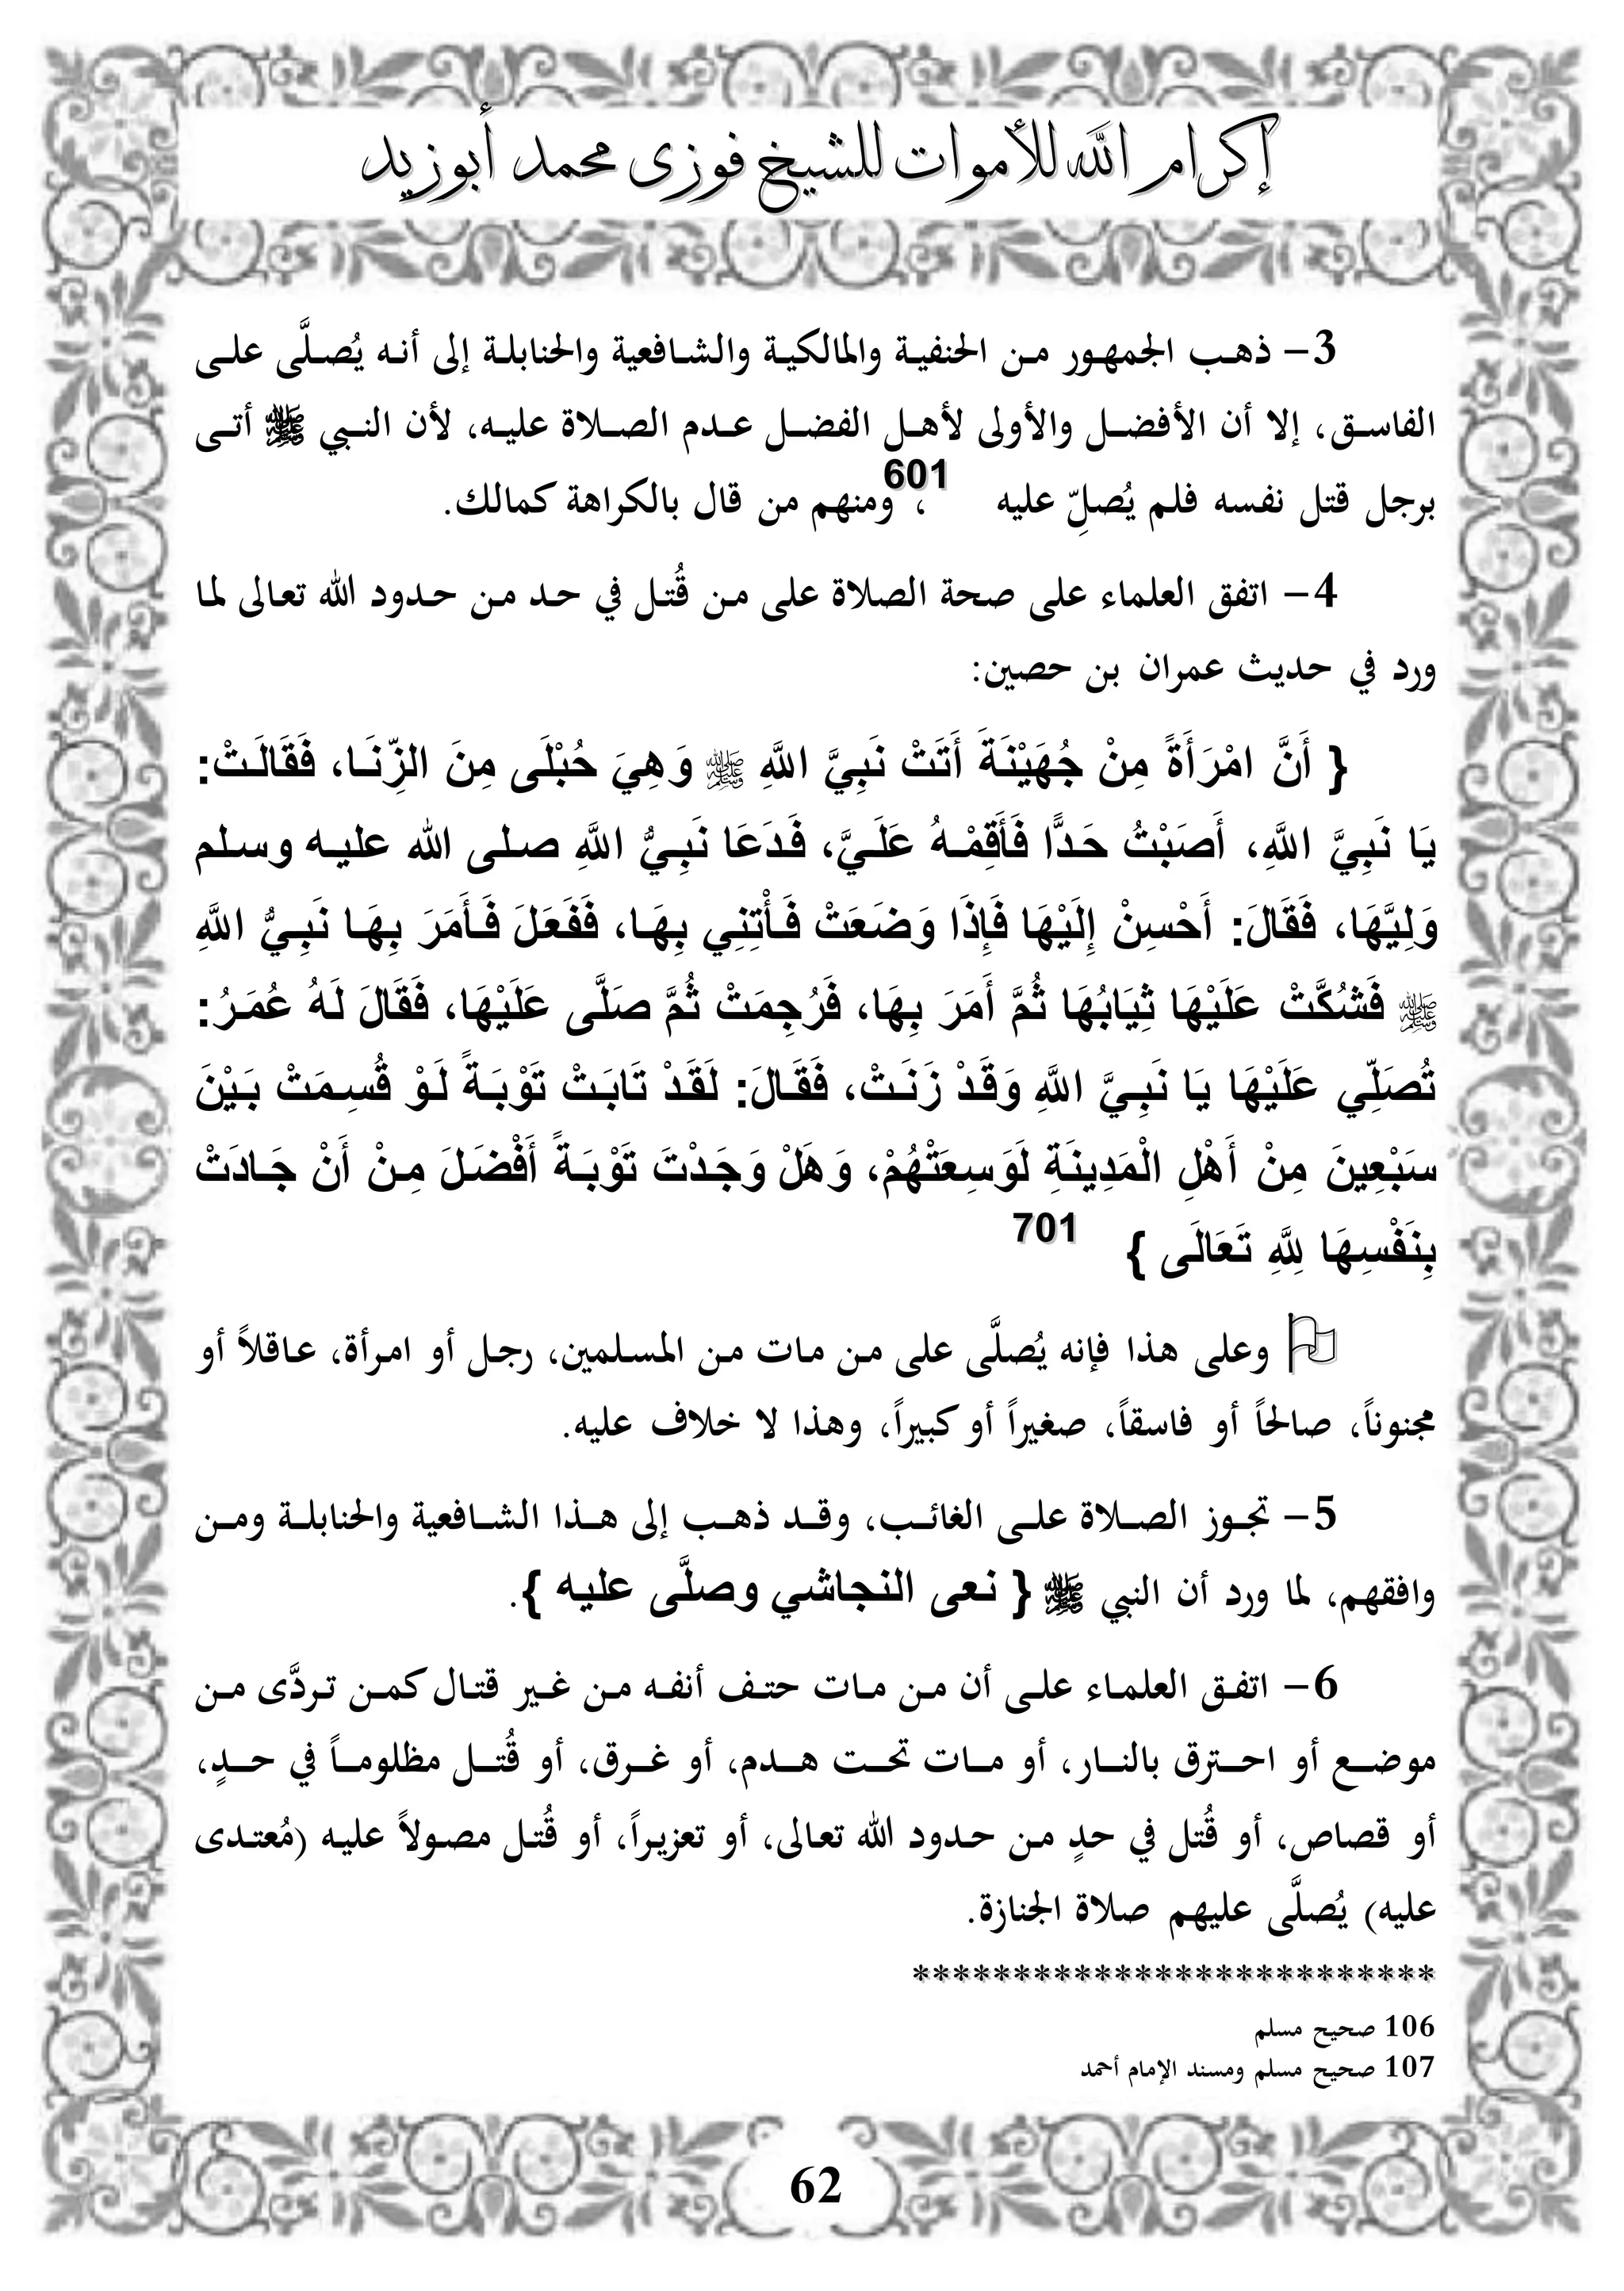 إكرام الله للأموات للشيخ فوزى محمد أبوزيد
3- ذهب الجمهور من الحنفية والمالكية والشافعية والحنابلة إلى أنه يُصلَّى على
الفاسق، إلا أن الأفضل والأولى لأهل الفضل عدم الصلاة عليه، لأن النبي ﷺ أتى
برجل قتل نفسه فلم يُصلِّ عليه 601، ومنهم من قال بالكراهة كمالك.
4- اتفق العلماء على صحة الصلاة على من قُتل في حد من حدود الله تعالى لما
ورد في حديث عمران بن حصين:
{ أَنَّ امْرَأَةً مِنْ جُهَيْنَةَ أَتَتْ نَبِيَّ اللَّهِ ﷺ وَهِيَ حُبْلَى مِنَ الزِّنَا، فَقَالَتْ:
يَا نَبِيَّ اللَّهِ، أَصَبْتُ حَدًّا فَأَقِمْهُ عَلَيَّ، فَدَعَا نَبِيُّ اللَّهِ صلى الله عليه وسلم
وَلِيَّهَا، فَقَالَ: أَحْسِنْ إِلَيْهَا فَإِذَا وَضَعَتْ فَأْتِنِي بِهَا، فَفَعَلَ فَأَمَرَ بِهَا نَبِيُّ اللَّهِ
ﷺ فَشُكَّتْ عَلَيْهَا ثِيَابُهَا ثُمَّ أَمَرَ بِهَا، فَرُجِمَتْ ثُمَّ صَلَّى عَلَيْهَا، فَقَالَ لَهُ عُمَرُ:
تُصَلِّي عَلَيْهَا يَا نَبِيَّ اللَّهِ وَقَدْ زَنَتْ، فَقَالَ: لَقَدْ تَابَتْ تَوْبَةً لَوْ قُسِمَتْ بَيْنَ
سَبْعِينَ مِنْ أَهْلِ الْمَدِينَةِ لَوَسِعَتْهُمْ، وَهَلْ وَجَدْتَ تَوْبَةً أَفْضَلَ مِنْ أَنْ جَادَتْ
بِنَفْسِهَا لِلَّهِ تَعَالَى } 701
وعلى هذا فإنه يُصلَّى على من مات من المسلمين، رجل أو امرأة، عاقلاً أو
مجنوناً، صالحاً أو فاسقاً، صغيراً أو كبيراً، وهذا لا خلاف عليه.
5- تجوز الصلاة على الغائب، وقد ذهب إلى هذا الشافعية والحنابلة ومن
وافقهم، لما ورد أن النبي ﷺ { نعى النجاشي وصلَّى عليه }.
6- اتفق العلماء على أن من مات حتف أنفه من غير قتال كمن تردَّى من
موضع أو احترق بالنار، أو مات تحت هدم، أو غرق، أو قُتل مظلوماً في حدٍ،
أو قصاص، أو قُتل في حدٍ من حدود الله تعالى، أو تعزيراً، أو قُتل مصولاً عليه (مُعتدى
عليه) يُصلَّى عليهم صلاة الجنازة.
**************************
106 صحيح مسلم
107 صحيح مسلم ومسند الإمام أحمد
62